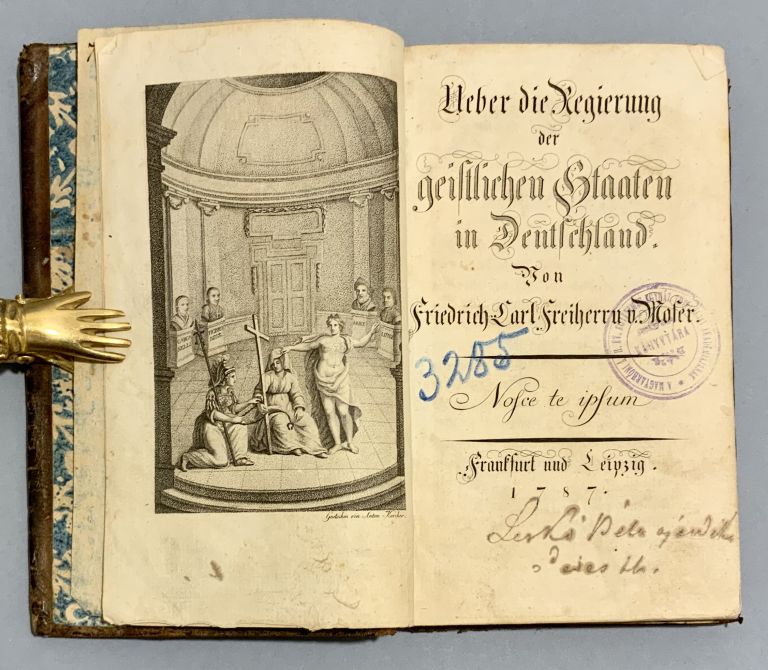 Gestochen von Anton Karcher.
Ueber die Regierung
der
geistlichen Staaten
in Deutschland.
Von
Friedrich Carl Freiherrn v. Moser.
3285
KÖNYVTÁRA
A MAGYARHONI
Nosce te ipsum
Frankfurt und Leipzig.
1787.
Leskó Béla ajándéka